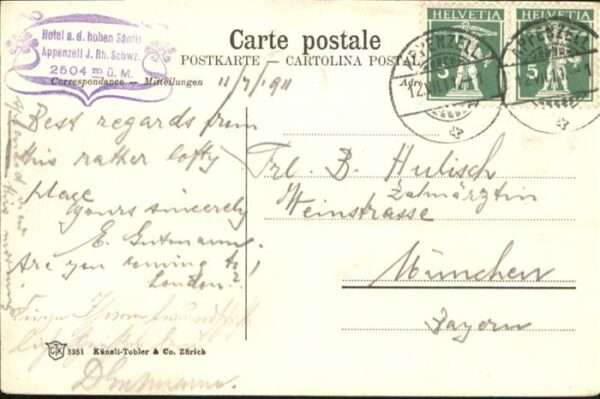 Hotel a. d. hohen Säntis
Appenzell J. Rh. Schwz.
2504 m ü. M.
Carte postale
POSTKARTE - CARTOLINA POSTALE
Correspondance — Mitteilungen
11/7/1911
HELVETIA
HELVETIA
5
5
APPENZELL
APPENZELL
Best regards from
this rather lofty
place
yours sincerely
E. Gutmann
Are you coming to
London?
Frl. B. Hulisch
Zahnärztin
Weinstrasse
München
Bayern
3351 Künzli-Tobler & Co. Zürich